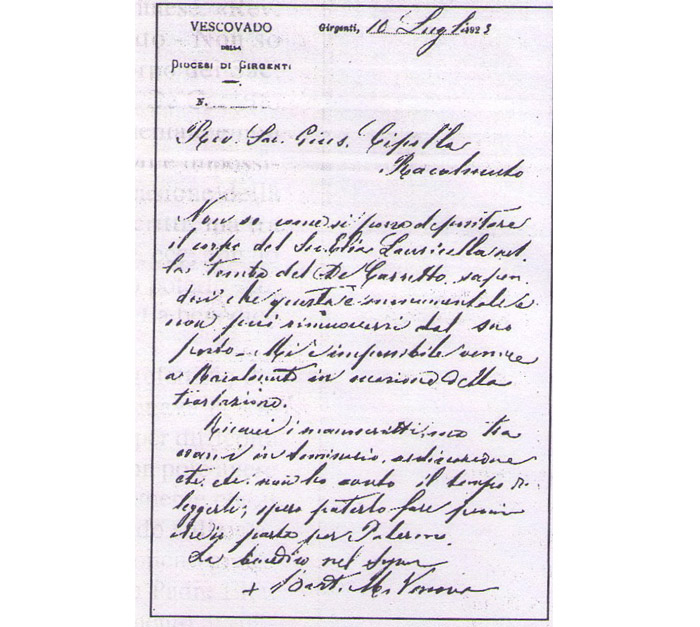 VESCOVADO
DELLA
DIOCESI DI GIRGENTI
N.
Girgenti, 10 Lugli 1923
Rev. Sac. Gius. Cipolla
Racalmuto
Non so come si possa depositare
il corpo del Sac. Elia Lauricella nel-
la tomba del De Carretto, sapen-
dosi che questa è monumentale e
non può rimuoversi dal suo
posto. Mi è impossibile venire
a Racalmuto in occasione della
traslazione.
Ricevei i manoscritti, ma tro
vavasi in Seminario
che non ho avuto il tempo di
leggerli; spero poterlo fare prima
che io parta per Palermo.
La benedico nel Signore
+ Bart. M. Vescovo